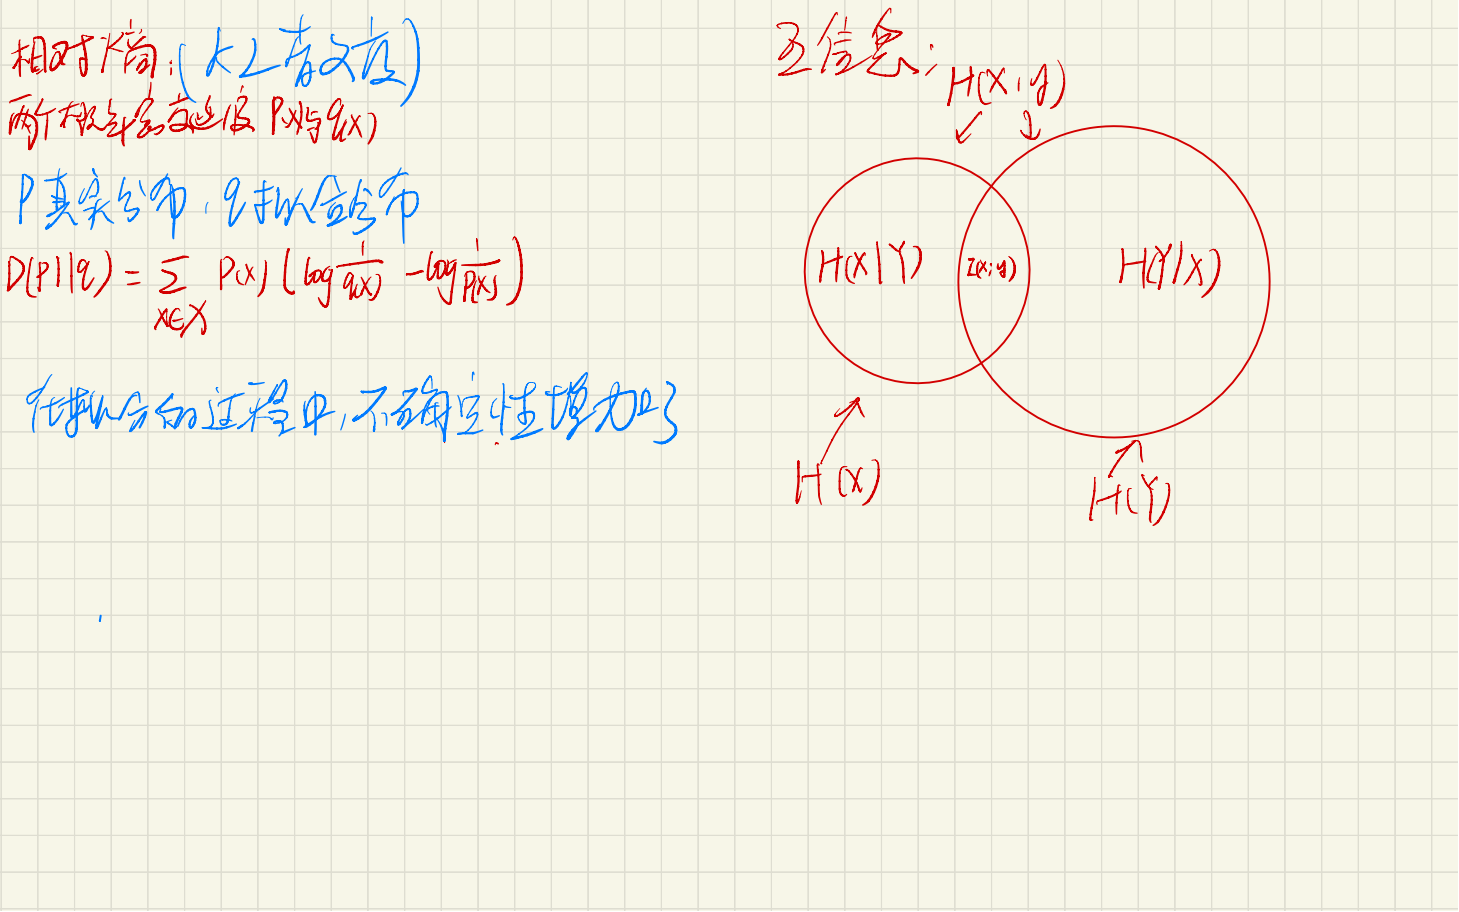 相对熵:(KL散度)
两个概率密度 P(x)与q(x)
P真实分布,q拟合分布
D(P||q) = ∑ P(x) (log 1/q(x) - log 1/P(x))
x∈X
在拟合的过程中,不确定性增加了
互信息:
H(X,y)
H(X|Y)
I(x;y)
H(Y|X)
H(X)
H(Y)